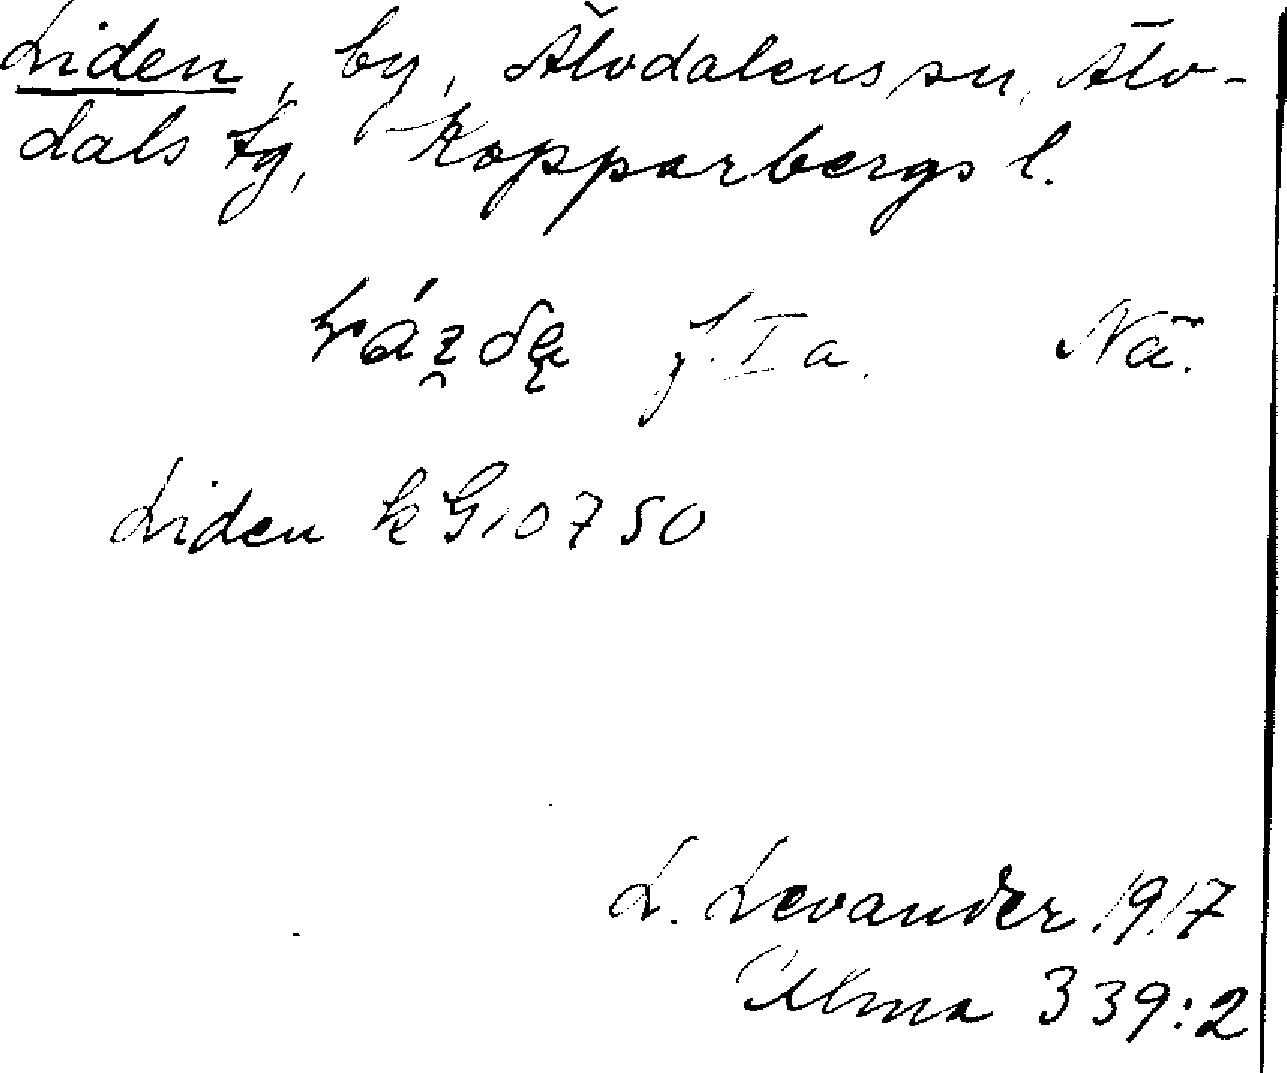 Liden, by, Älvdalens sn, Älv-
dals tg, Kopparbergs l.
f. I a. Nä.
Liden k G10750
L. Levander 1917
Ulma 339:2